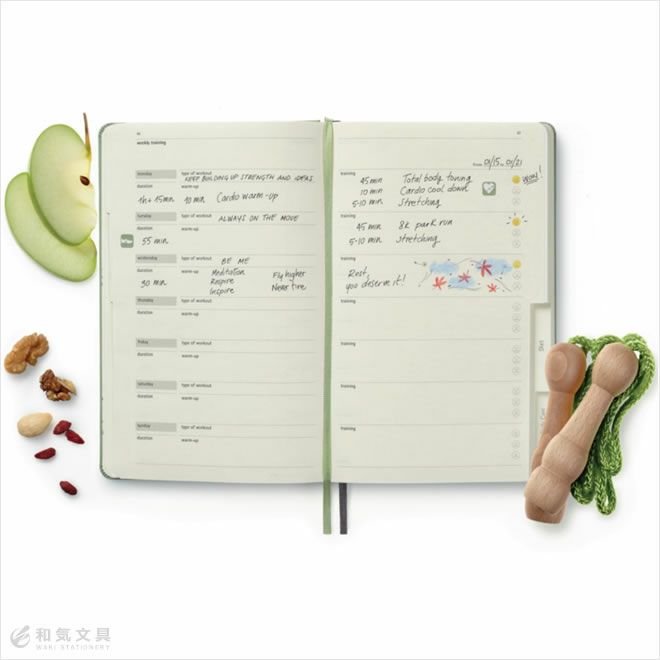 weekly training
monday
type of workout
KEEP BUILDING UP STRENGTH AND IDEAS
duration
warm-up
1h + 15min
10 min
Cardio warm-up
tuesday
type of workout
ALWAYS ON THE MOVE
duration
warm-up
55 min
wednesday
type of workout
BE ME
duration
warm-up
30 min
Meditation
Respire
Inspire
Fly higher
Never tire
thursday
type of workout
duration
warm-up
friday
type of workout
duration
warm-up
saturday
type of workout
duration
warm-up
sunday
type of workout
duration
warm-up
from 01/15 to 01/21
training
45 min
Total body toning
WOW!
10 min
Cardio cool down
5-10 min
Stretching
training
45 min
8k park run
5-10 min
Stretching
training
Rest,
you deserve it!
training
training
training
training
Diet
和気文具
WAKI STATIONERY